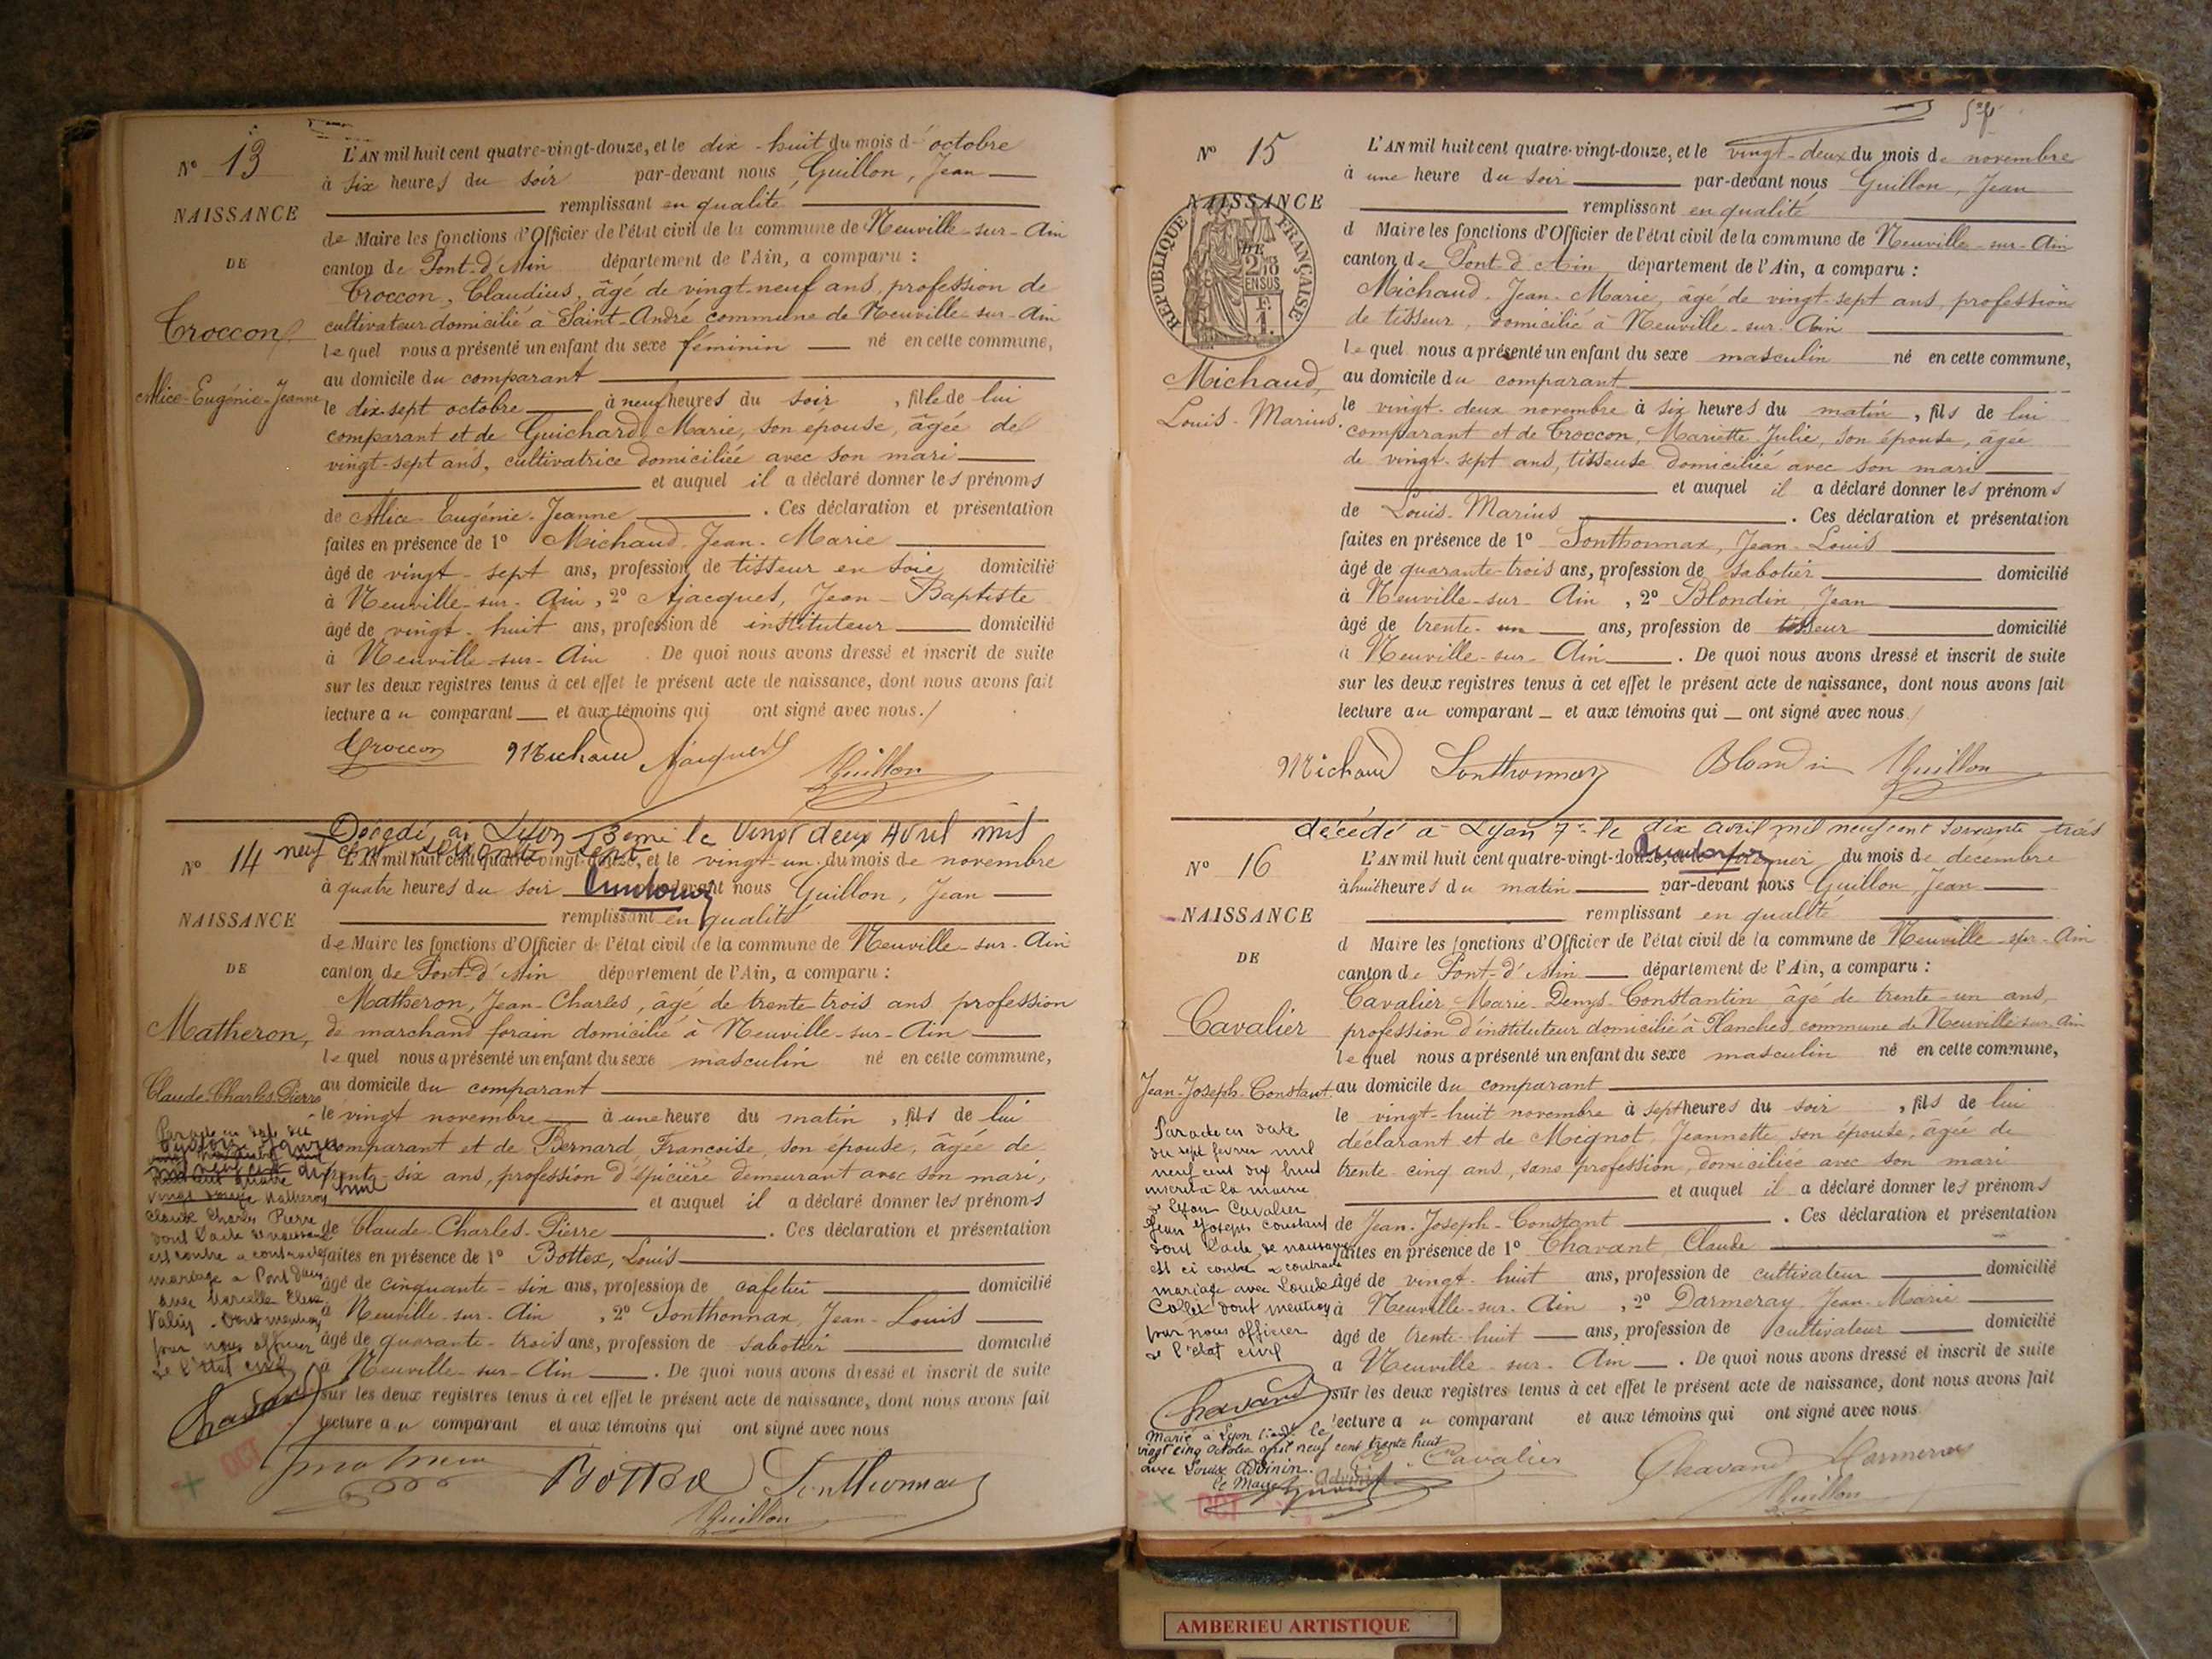 Nº 13
NAISSANCE
DE
Troccon
Alice-Eugénie-Jeanne
L'AN mil huit cent quatre-vingt-douze, et le dix-huit du mois d'octobre
à six heures du soir par-devant nous Guillon, Jean
remplissant en qualité
de Maire les fonctions d'Officier de l'état civil de la commune de Neuville-sur-Ain
canton de Pont-d'Ain département de l'Ain, a comparu :
Troccon, Claudius, âgé de vingt-neuf ans, profession de
cultivateur domicilié à Saint-André commune de Neuville-sur-Ain
lequel nous a présenté un enfant du sexe féminin né en cette commune,
au domicile du comparant
le dix-sept octobre à neuf heures du soir, fille de lui
comparant et de Guichard, Marie, son épouse, âgée de
vingt-sept ans, cultivatrice domiciliée avec son mari
et auquel il a déclaré donner les prénoms
de Alice-Eugénie-Jeanne. Ces déclaration et présentation
faites en présence de 1º Michaud Jean-Marie
âgé de vingt-sept ans, profession de tisseur en soie domicilié
à Neuville-sur-Ain, 2º Ajacques, Jean-Baptiste
âgé de vingt-huit ans, profession de instituteur domicilié
à Neuville-sur-Ain. De quoi nous avons dressé et inscrit de suite
sur les deux registres tenus à cet effet le présent acte de naissance, dont nous avons fait
lecture au comparant et aux témoins qui ont signé avec nous./
Troccon Michaud Ajacques Guillon
Décédé à Lyon 3eme le vingt deux Avril mil
neuf cent soixante sept
Nº 14
NAISSANCE
DE
Matheron,
Claude-Charles-Pierre
L'AN mil huit cent quatre-vingt-douze, et le vingt-un du mois de novembre
à quatre heures du soir par-devant nous Guillon, Jean
remplissant en qualité
de Maire les fonctions d'Officier de l'état civil de la commune de Neuville-sur-Ain
canton de Pont-d'Ain département de l'Ain, a comparu :
Matheron, Jean-Charles, âgé de trente-trois ans profession
de marchand forain domicilié à Neuville-sur-Ain
lequel nous a présenté un enfant du sexe masculin né en cette commune,
au domicile du comparant
le vingt novembre à une heure du matin, fils de lui
comparant et de Bernard, Françoise, son épouse, âgée de
trente-six ans, profession d'épicière demeurant avec son mari,
et auquel il a déclaré donner les prénoms
de Claude-Charles-Pierre. Ces déclaration et présentation
faites en présence de 1º Bottex, Louis
âgé de cinquante-six ans, profession de cafetier domicilié
à Neuville-sur-Ain, 2º Sonthonnax, Jean-Louis
âgé de quarante-trois ans, profession de sabotier domicilié
à Neuville-sur-Ain. De quoi nous avons dressé et inscrit de suite
sur les deux registres tenus à cet effet le présent acte de naissance, dont nous avons fait
lecture au comparant et aux témoins qui ont signé avec nous
Par acte en date du
Matheron
Claude Charles Pierre
dont l'acte de naissance
est contre a contracté
mariage a Pont d'ain
avec
dont mention
par nous officier
de l'état civil
OCT
Bottex Sonthonnax
Guillon
Nº 15
NAISSANCE
RÉPUBLIQUE FRANÇAISE
2/10 EN SUS
Michaud,
Louis-Marius.
L'AN mil huit cent quatre-vingt-douze, et le vingt-deux du mois de novembre
à une heure du soir par-devant nous Guillon, Jean
remplissant en qualité
d Maire les fonctions d'Officier de l'état civil de la commune de Neuville-sur-Ain
canton de Pont-d'Ain département de l'Ain, a comparu :
Michaud, Jean-Marie, âgé de vingt-sept ans, profession
de tisseur, domicilié à Neuville-sur-Ain
lequel nous a présenté un enfant du sexe masculin né en cette commune,
au domicile du comparant
le vingt-deux novembre à six heures du matin, fils de lui
comparant et de Troccon, Mariette-Julie, son épouse, âgée
de vingt-sept ans, tisseuse domiciliée avec son mari
et auquel il a déclaré donner les prénoms
de Louis-Marius. Ces déclaration et présentation
faites en présence de 1º Sonthonnax, Jean-Louis
âgé de quarante-trois ans, profession de sabotier domicilié
à Neuville-sur-Ain, 2º Blondin, Jean
âgé de trente-un ans, profession de tisseur domicilié
à Neuville-sur-Ain. De quoi nous avons dressé et inscrit de suite
sur les deux registres tenus à cet effet le présent acte de naissance, dont nous avons fait
lecture au comparant et aux témoins qui ont signé avec nous./
Michaud Sonthonnax Blondin Guillon
décédé à Lyon 7e le dix avril mil neuf cent soixante trois
Nº 16
NAISSANCE
DE
Cavalier
Jean-Joseph-Constant
L'AN mil huit cent quatre-vingt-douze, et le premier du mois de décembre
à huit heures du matin par-devant nous Guillon, Jean
remplissant en qualité
d Maire les fonctions d'Officier de l'état civil de la commune de Neuville-sur-Ain
canton de Pont-d'Ain département de l'Ain, a comparu :
Cavalier Marie-Denys-Constantin âgé de trente-un ans,
profession d'instituteur domicilié à Planches commune de Neuville-sur-Ain
lequel nous a présenté un enfant du sexe masculin né en cette commune,
au domicile du comparant
le vingt-huit novembre à sept heures du soir, fils de lui
déclarant et de Mignot, Jeannette son épouse, âgée de
trente-cinq ans, sans profession, domiciliée avec son mari
et auquel il a déclaré donner les prénoms
de Jean-Joseph-Constant. Ces déclaration et présentation
faites en présence de 1º Chavant, Claude
âgé de vingt-huit ans, profession de cultivateur domicilié
à Neuville-sur-Ain, 2º Darmeray Jean-Marie
âgé de trente-huit ans, profession de cultivateur domicilié
à Neuville-sur-Ain. De quoi nous avons dressé et inscrit de suite
sur les deux registres tenus à cet effet le présent acte de naissance, dont nous avons fait
lecture au comparant et aux témoins qui ont signé avec nous
Par acte en date
du sept février mil
neuf cent dix huit
inscrit à la mairie
de Lyon Cavalier
Jean Joseph Constant
dont l'acte de naissance
est ci contre a contracté
mariage avec Louise
Collet dont mention
par nous officier
de l'état civil
Chavand
Marié à Lyon le
vingt cinq octobre mil neuf cent trente huit
avec Louise Advinin.
Le Maire
OCT
Cavalier Chavand Darmeray
Guillon
AMBERIEU ARTISTIQUE